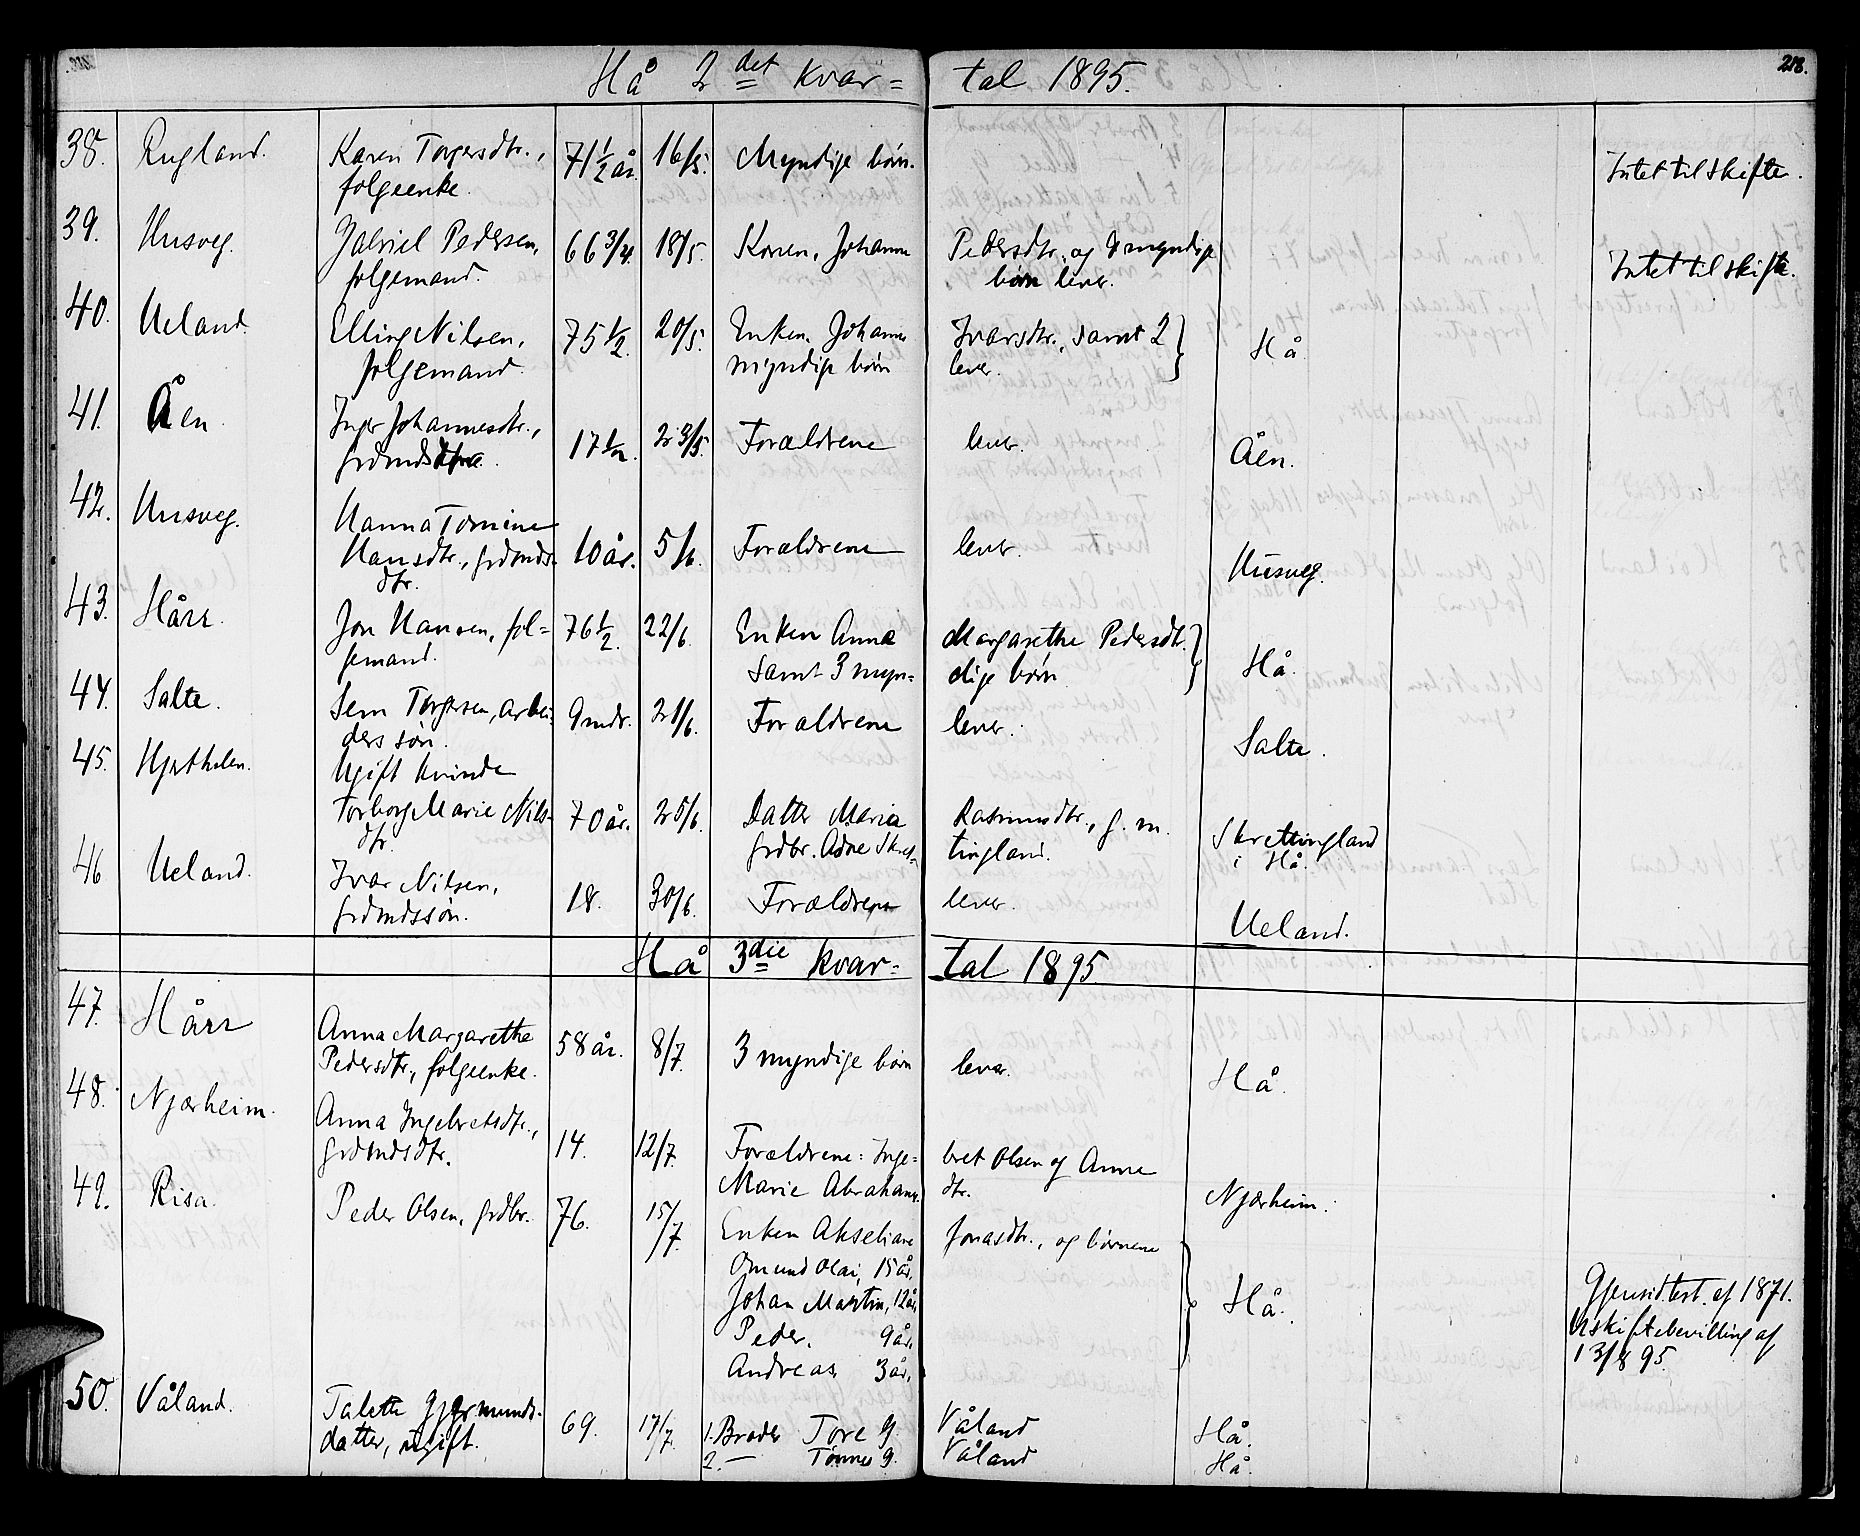 Hå 2det kvar= tal 1895. 218.
38. Rugland. Karen Torgersdtr., 71½ år. 16/5. Myndige børn. Intet til skifte.
folgeenke.
39. Husveg. Gabriel Pedersen, 66 3/4. 18/5. Karen, Johanne Pedersdtr, og myndige Intet til skifte.
folgemand. børn lever.
40. Ueland. Elling Nilsen, 75½. 20/5. Enken, Johanne Ivarsdtr., samt 2 Hå.
folgemand. myndige børn lever.
41. Åen Inger Johannesdtr., 17½. 23/5. Forældrene lever. Åen.
grdmds
42. Husveg. Hanna Tomine 10 år. 5/6. Forældrene lever. Husveg.
Hansdtr., grdmds-
dtr.
43. Hårr. Jon Hansen, fol= 76½. 22/6. Enken Anna Margarethe Pedersdtr. Hå.
gemand. samt 3 myn= dige børn
44. Salte. Sem Torgersen, arbei- 9 mdr. 21/6. Forældrene lever. Salte.
ders søn.
45. Ugift kvinde
Torborg Marie Nils- 70 år. 25/6. Datter Maria Rasmusdtr., g. m. Skrettingland
dtr. grdbr. Adne Skret= tingland. i Hå.
46 Ueland. Ivar Nilsen, 18. 30/6. Forældrene lever. Ueland.
grdmdssøn.
Hå 3die kvar= tal 1895.
47. Hårr Anna Margarethe 58 år. 8/7. 3 myndige børn lever. Hå.
Pedersdtr, folgeenke.
48. Njærheim. Anna Ingebretsdtr., 14. 12/7. Forældrene: Inge= bret Olsen og Anne Njærheim.
grdmdsdtr. Marie Abrahams- dtr.
49. Risa. Peder Olsen, grdbr. 76. 15/7. Enken Akseliane Jonasdtr., og børnene Hå.
Omund Olai, 15 år, Gjensid. test. af 1871.
Johan Martin, 12 år, Uskiftebevilling af
Peder. 9 år, 13/8 95.
Andreas 3 år,
50. Våland. Talette Gjermunds- 69. 17/7. 1. Broder Tore G. Våland Hå.
datter, ugift. 2. — Tønnes G. Våland Hå.